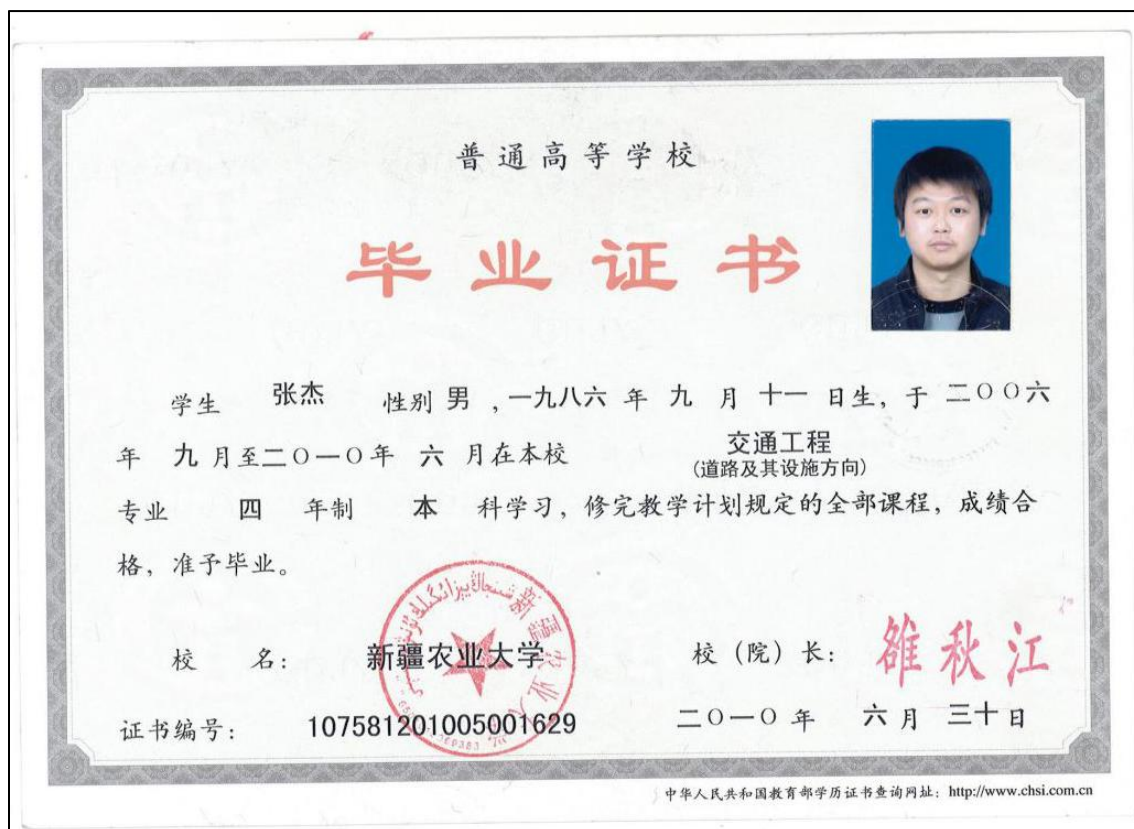 普通高等学校
毕业证书
学生 张杰 性别 男 ,一九八六 年 九 月 十一 日生, 于 二〇〇六
年 九 月至二〇一〇年 六 月在本校 交通工程
(道路及其设施方向)
专业 四 年制 本 科学习, 修完教学计划规定的全部课程, 成绩合
格, 准予毕业。
新疆农业大学
校 名: 新疆农业大学 校 (院) 长: 雒秋江
证书编号: 107581201005001629 二〇一〇 年 六 月 三十 日
中华人民共和国教育部学历证书查询网址: http://www.chsi.com.cn